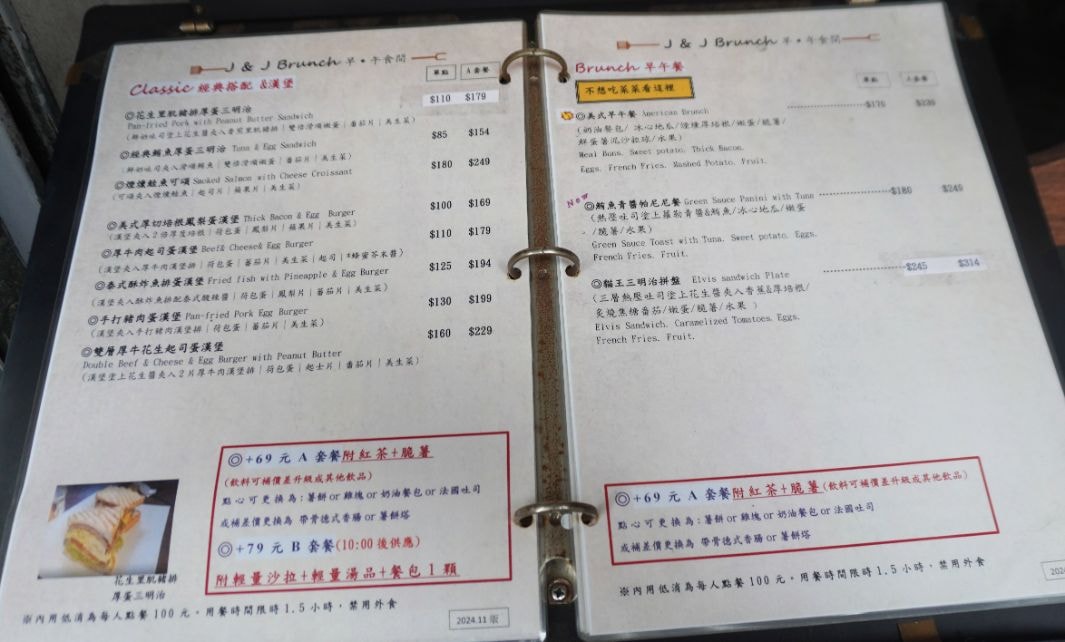 J & J Brunch 早•午食間
Classic 經典搭配 &漢堡
單點 A套餐
◎花生里肌豬排厚蛋三明治 $110 $179
Pan-fried Pork with Peanut Butter Sandwich
(鮮奶吐司塗上花生醬夾入香煎里肌豬排|雙倍滑順嫩蛋|番茄片|美生菜)
◎經典鮪魚厚蛋三明治 Tuna & Egg Sandwich $85 $154
(鮮奶吐司夾入滑順鮪魚|雙倍滑順嫩蛋|番茄片|美生菜)
◎煙燻鮭魚可頌 Smoked Salmon with Cheese Croissant $180 $249
(可頌夾入煙燻鮭魚|起司片|蘋果片|美生菜)
◎美式厚切培根鳳梨蛋漢堡 Thick Bacon & Egg Burger $100 $169
(漢堡夾入2倍厚度培根|荷包蛋|鳳梨片|蘋果片|美生菜)
◎厚牛肉起司蛋漢堡 Beef& Cheese& Egg Burger $110 $179
(漢堡夾入厚牛肉漢堡排|荷包蛋|番茄片|美生菜|起司|*蜂蜜芥末醬)
◎泰式酥炸魚排蛋漢堡 Fried fish with Pineapple & Egg Burger $125 $194
(漢堡夾入酥炸魚排配泰式酸辣醬|荷包蛋|鳳梨片|番茄片|美生菜)
◎手打豬肉蛋漢堡 Pan-fried Pork Egg Burger $130 $199
(漢堡夾入手打豬肉漢堡排|荷包蛋|番茄片|美生菜)
◎雙層厚牛花生起司蛋漢堡 $160 $229
Double Beef & Cheese & Egg Burger with Peanut Butter
(漢堡塗上花生醬夾入2片厚牛肉漢堡排|荷包蛋|起士片|番茄片|美生菜)
◎+69 元 A 套餐附紅茶+脆薯
(飲料可補價差升級或其他飲品)
點心可更換為:薯餅or雞塊or奶油餐包or法國吐司
或補差價更換為 帶骨德式香腸or薯餅塔
◎+79 元 B 套餐(10:00後供應)
附輕量沙拉+輕量湯品+餐包1顆
花生里肌豬排
厚蛋三明治
※內用低消為每人點餐100元。用餐時間限時1.5小時,禁用外食
2024.11 版
J & J Brunch 早•午食間
Brunch 早午餐
單點 A套餐
不想吃菜菜看這裡
◎美式早午餐 American Brunch $170 $239
(奶油餐包/冰心地瓜/煙燻厚培根/嫩蛋/脆薯/
鮮蛋薯泥沙拉球/水果)
Meal Buns. Sweet potato. Thick Bacon.
Eggs. French Fries. Mashed Potato. Fruit.
New
◎鮪魚青醬帕尼尼餐 Green Sauce Panini with Tuna $180 $249
(熱壓吐司塗上羅勒青醬&鮪魚/冰心地瓜/嫩蛋
/脆薯/水果)
Green Sauce Toast with Tuna. Sweet potato. Eggs.
French Fries. Fruit.
◎貓王三明治拼盤 Elvis sandwich Plate $245 $314
(三層熱壓吐司塗上花生醬夾入香蕉&厚培根/
炙燒焦糖番茄/嫩蛋/脆薯/水果)
Elvis Sandwich. Caramelized Tomatoes. Eggs.
French Fries. Fruit.
◎+69 元 A 套餐附紅茶+脆薯(飲料可補價差升級或其他飲品)
點心可更換為:薯餅or雞塊or奶油餐包or法國吐司
或補差價更換為 帶骨德式香腸or薯餅塔
※內用低消為每人點餐100元。用餐時間限時1.5小時,禁用外食